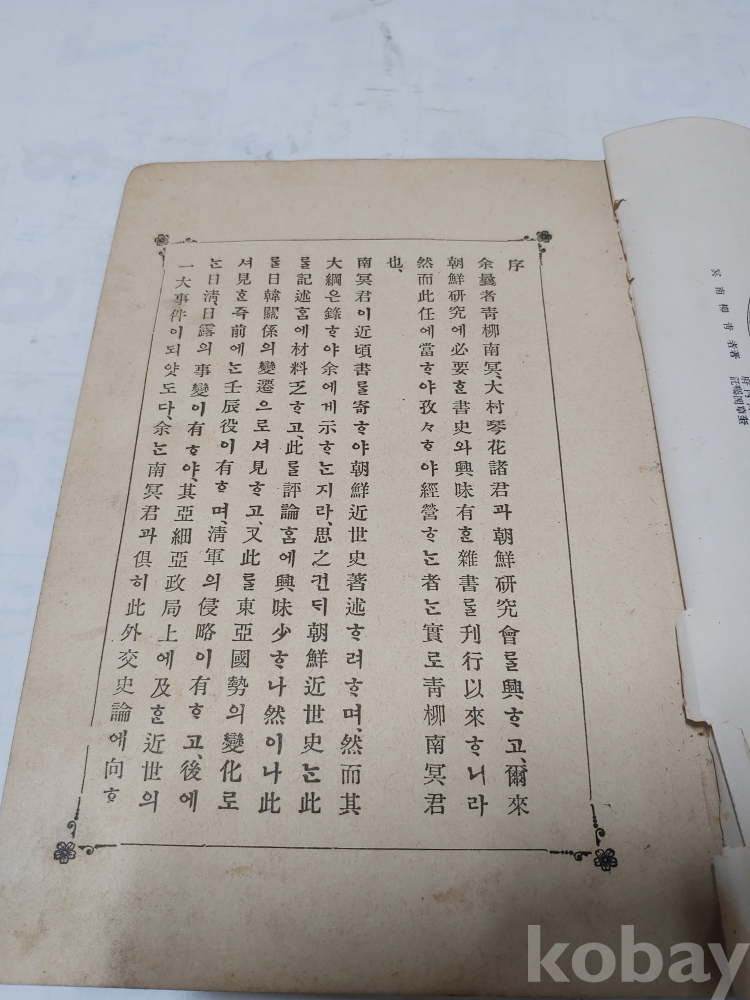 序
余曩者靑柳南冥、大村琴花諸君과朝鮮硏究會를興ᄒᆞ고、爾來
朝鮮硏究에必要ᄒᆞᆫ書史와興味有ᄒᆞᆫ雜書를刊行以來ᄒᆞ니라
然而此任에當ᄒᆞ야孜々ᄒᆞ야經營ᄒᆞᄂᆞᆫ者ᄂᆞᆫ實로靑柳南冥君
也、
南冥君이近頃書를寄ᄒᆞ야朝鮮近世史著述ᄒᆞ려ᄒᆞ며、然而其
大綱은錄ᄒᆞ야余에게示ᄒᆞᄂᆞᆫ지라、思之컨ᄃᆡ朝鮮近世史ᄂᆞᆫ此
를記述홈에材料乏ᄒᆞ고、此를評論홈에興味少ᄒᆞ나然이나此
를日韓關係의變遷으로셔見ᄒᆞ고、又此를東亞國勢의變化로
셔見ᄒᆞᆫ즉前에ᄂᆞᆫ壬辰役이有ᄒᆞ며、淸軍의侵略이有ᄒᆞ고、後에
ᄂᆞᆫ日淸、日露의事變이有ᄒᆞ야、其亞細亞政局上에及ᄒᆞᆫ近世의
一大事件이되얏도다、余ᄂᆞᆫ南冥君과俱히此外交史論에向ᄒᆞ
冥南柳靑 者著
kobay